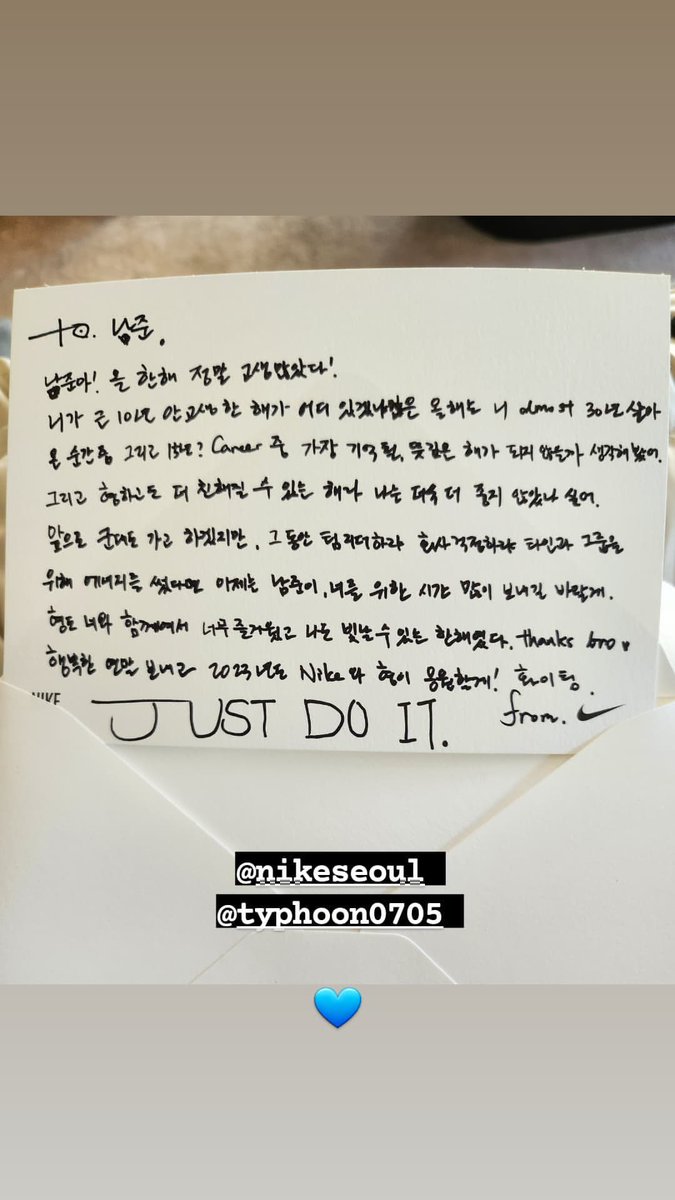 To. 남준.
남준아! 올 한해 정말 고생많았다!
니가 근 10년 안고생 한 해가 어디 있겠냐많은 올해는 니 almost 30년 살아
온 순간중 그리고 15년? Career 중 가장 기억될, 뜻깊은 해가 되지 않을까 생각해 봤어.
그리고 형하고도 더 친해질 수 있는 해라 나는 더욱 더 좋지 않았나 싶어.
앞으로 군대도 가고 하겠지만, 그동안 팀리더하랴 회사걱정하랴 타인과 그룹을
위해 에너지를 썼다면 이제는 남준이, 너를 위한 시간 많이 보내길 바랄게.
형도 너와 함께여서 너무 즐거웠고 나도 빛날 수 있는 한해였다. thanks bro
행복한 연말 보내고 2023년도 Nike와 형이 응원할게! 화이팅.
NIKE
JUST DO IT. from.
@nikeseoul
@typhoon0705